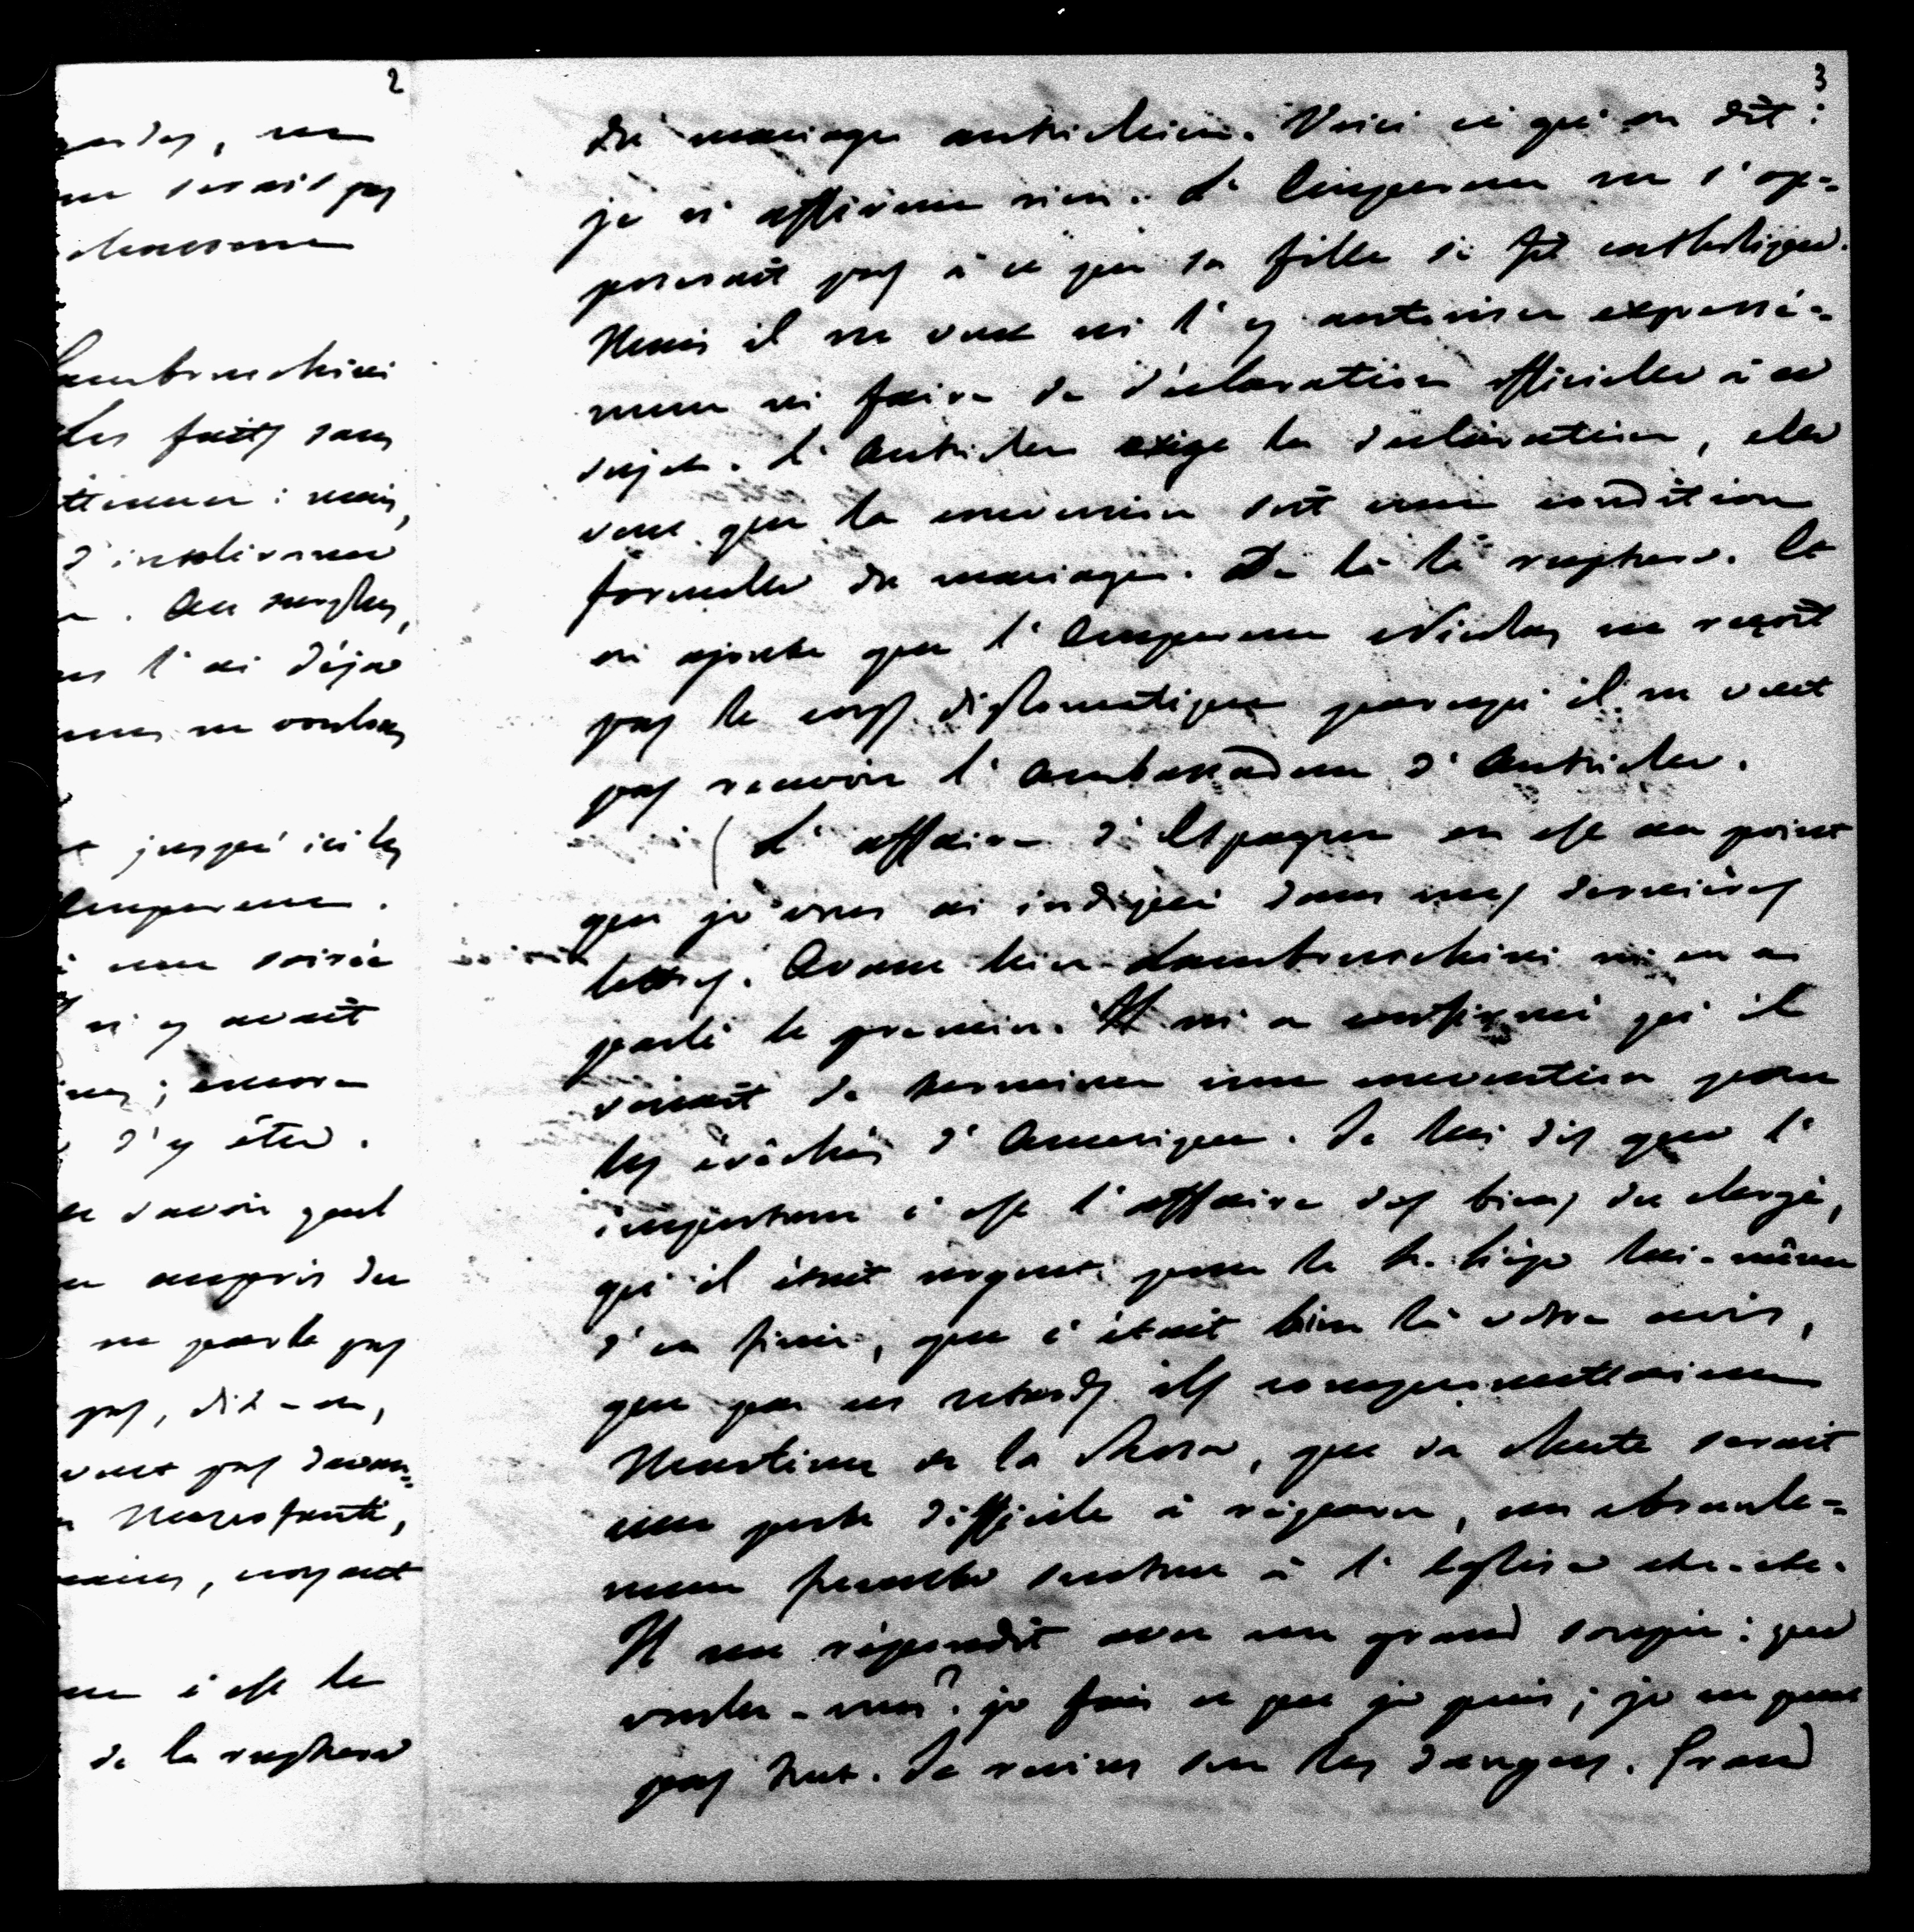 2
ne
ne serait pas
Lambruschini
les faits sans
mais,
d'intolérance
. Au surplus,
l'ai déjà
ne voulons
jusqu'ici les
Empereur.
une soirée
n'y avait
; encore
d'y être.
savoir quel
auprès du
ne parle pas
pas, dit-on,
veut pas davan-
Mezzofanti,
, croyant
c'est le
de la rupture
3
du mariage autrichien. Voici ce qu'on dit :
je n'affirme rien. L'Empereur ne s'op-
poserait pas à ce que sa fille se fît catholique.
Mais il ne veut ni l'y autoriser expressé-
ment ni faire de déclaration officielle à ce
sujet. L'Autriche exige la déclaration, elle
veut que la conversion soit une condition
formelle du mariage. De là la rupture. Et
on ajoute que l'Empereur Nicolas ne reçoit
pas le corps diplomatique parcequ'il ne veut
pas recevoir l'Ambassadeur d'Autriche.
( L'affaire d'Espagne en est au point
que je vous ai indiqué dans mes dernières
lettres. Avant hier Lambruschini m'en a
parlé le premier. Il m'a confirmé qu'il
venait de terminer une convention pour
les évêchés d'Amérique. Je lui dis que l'
important c'est l'affaire des biens du clergé,
qu'il était urgent pour le St. Siège lui-même
d'en finir, que c'était bien là votre avis,
que par ces retards ils compromettraient
Martinez de la Rosa, que sa chute serait
une perte difficile à réparer, un ébranle-
ment funeste surtout à l'Eglise etc. etc.
Il me répondit avec un grand soupir : que
voulez-vous? je fais ce que je puis ; je ne peux
pas tout. Je revins sur les dangers. Grand